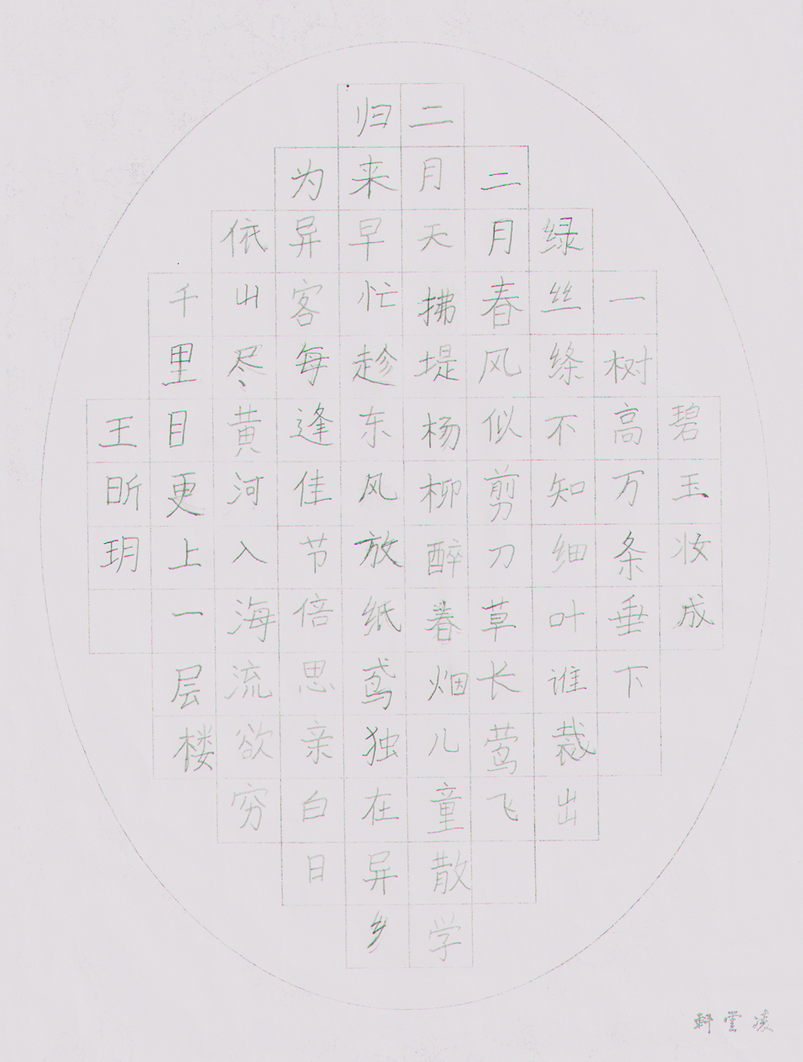 碧玉妆成
一树高万条垂下
绿丝绦不知细叶谁裁出
二月春风似剪刀草长莺飞
二月天拂堤杨柳醉春烟儿童散学
归来早忙趁东风放纸鸢独在异乡
为异客每逢佳节倍思亲白日
依山尽黄河入海流欲穷
千里目更上一层楼
王昕玥